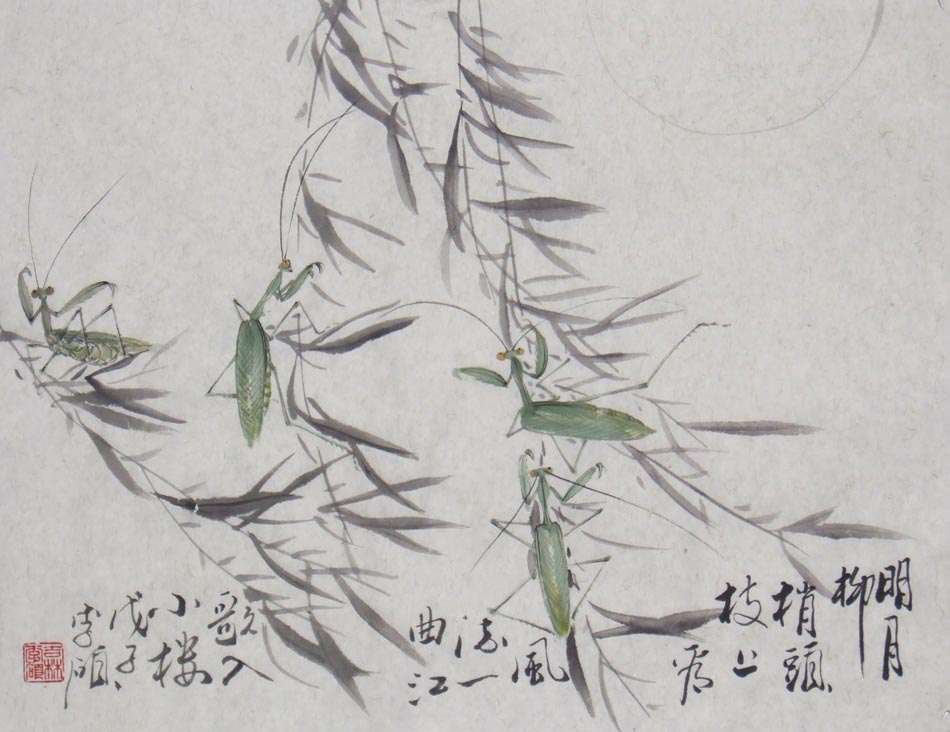 明月
柳
梢頭
枝上
風
流一
曲江
歌入
小樓
戊子
李